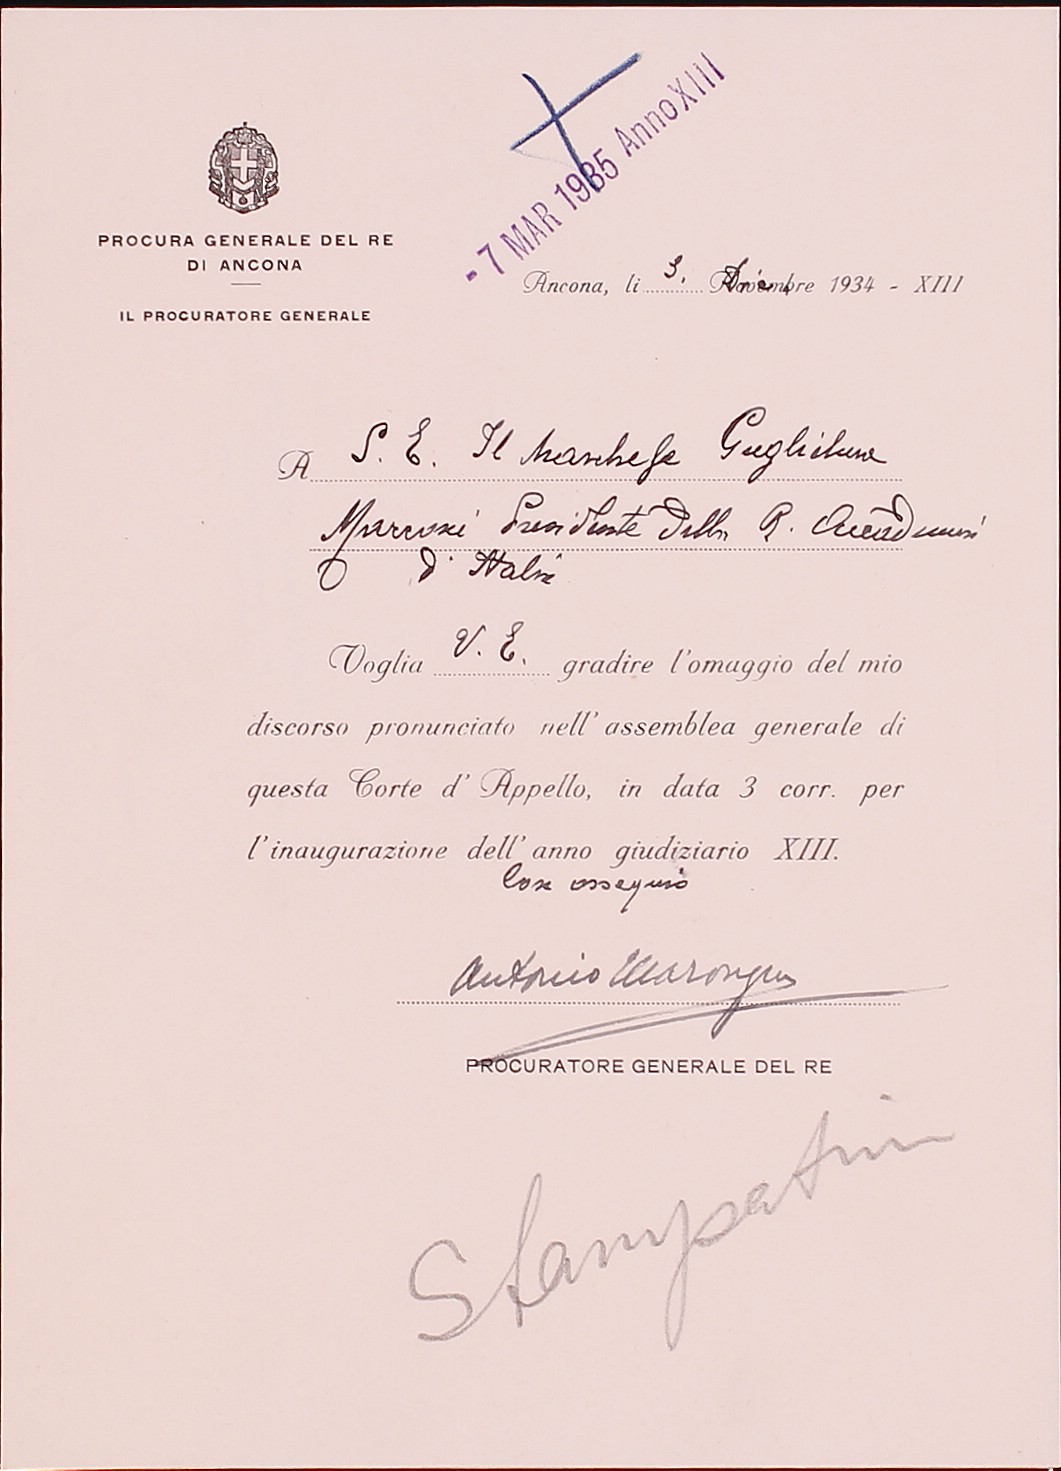 - 7 MAR 1935 Anno XIII
PROCURA GENERALE DEL RE
DI ANCONA
IL PROCURATORE GENERALE
Ancona, li 3. Novembre 1934 - XIII
A S. E. Il Marchese Guglielmo
Marconi Presidente della R. Accademia
d'Italia
Voglia V. E. gradire l'omaggio del mio
discorso pronunciato nell' assemblea generale di
questa Corte d' Appello, in data 3 corr. per
l'inaugurazione dell' anno giudiziario XIII.
Con ossequio
Antonio Marongiu
PROCURATORE GENERALE DEL RE